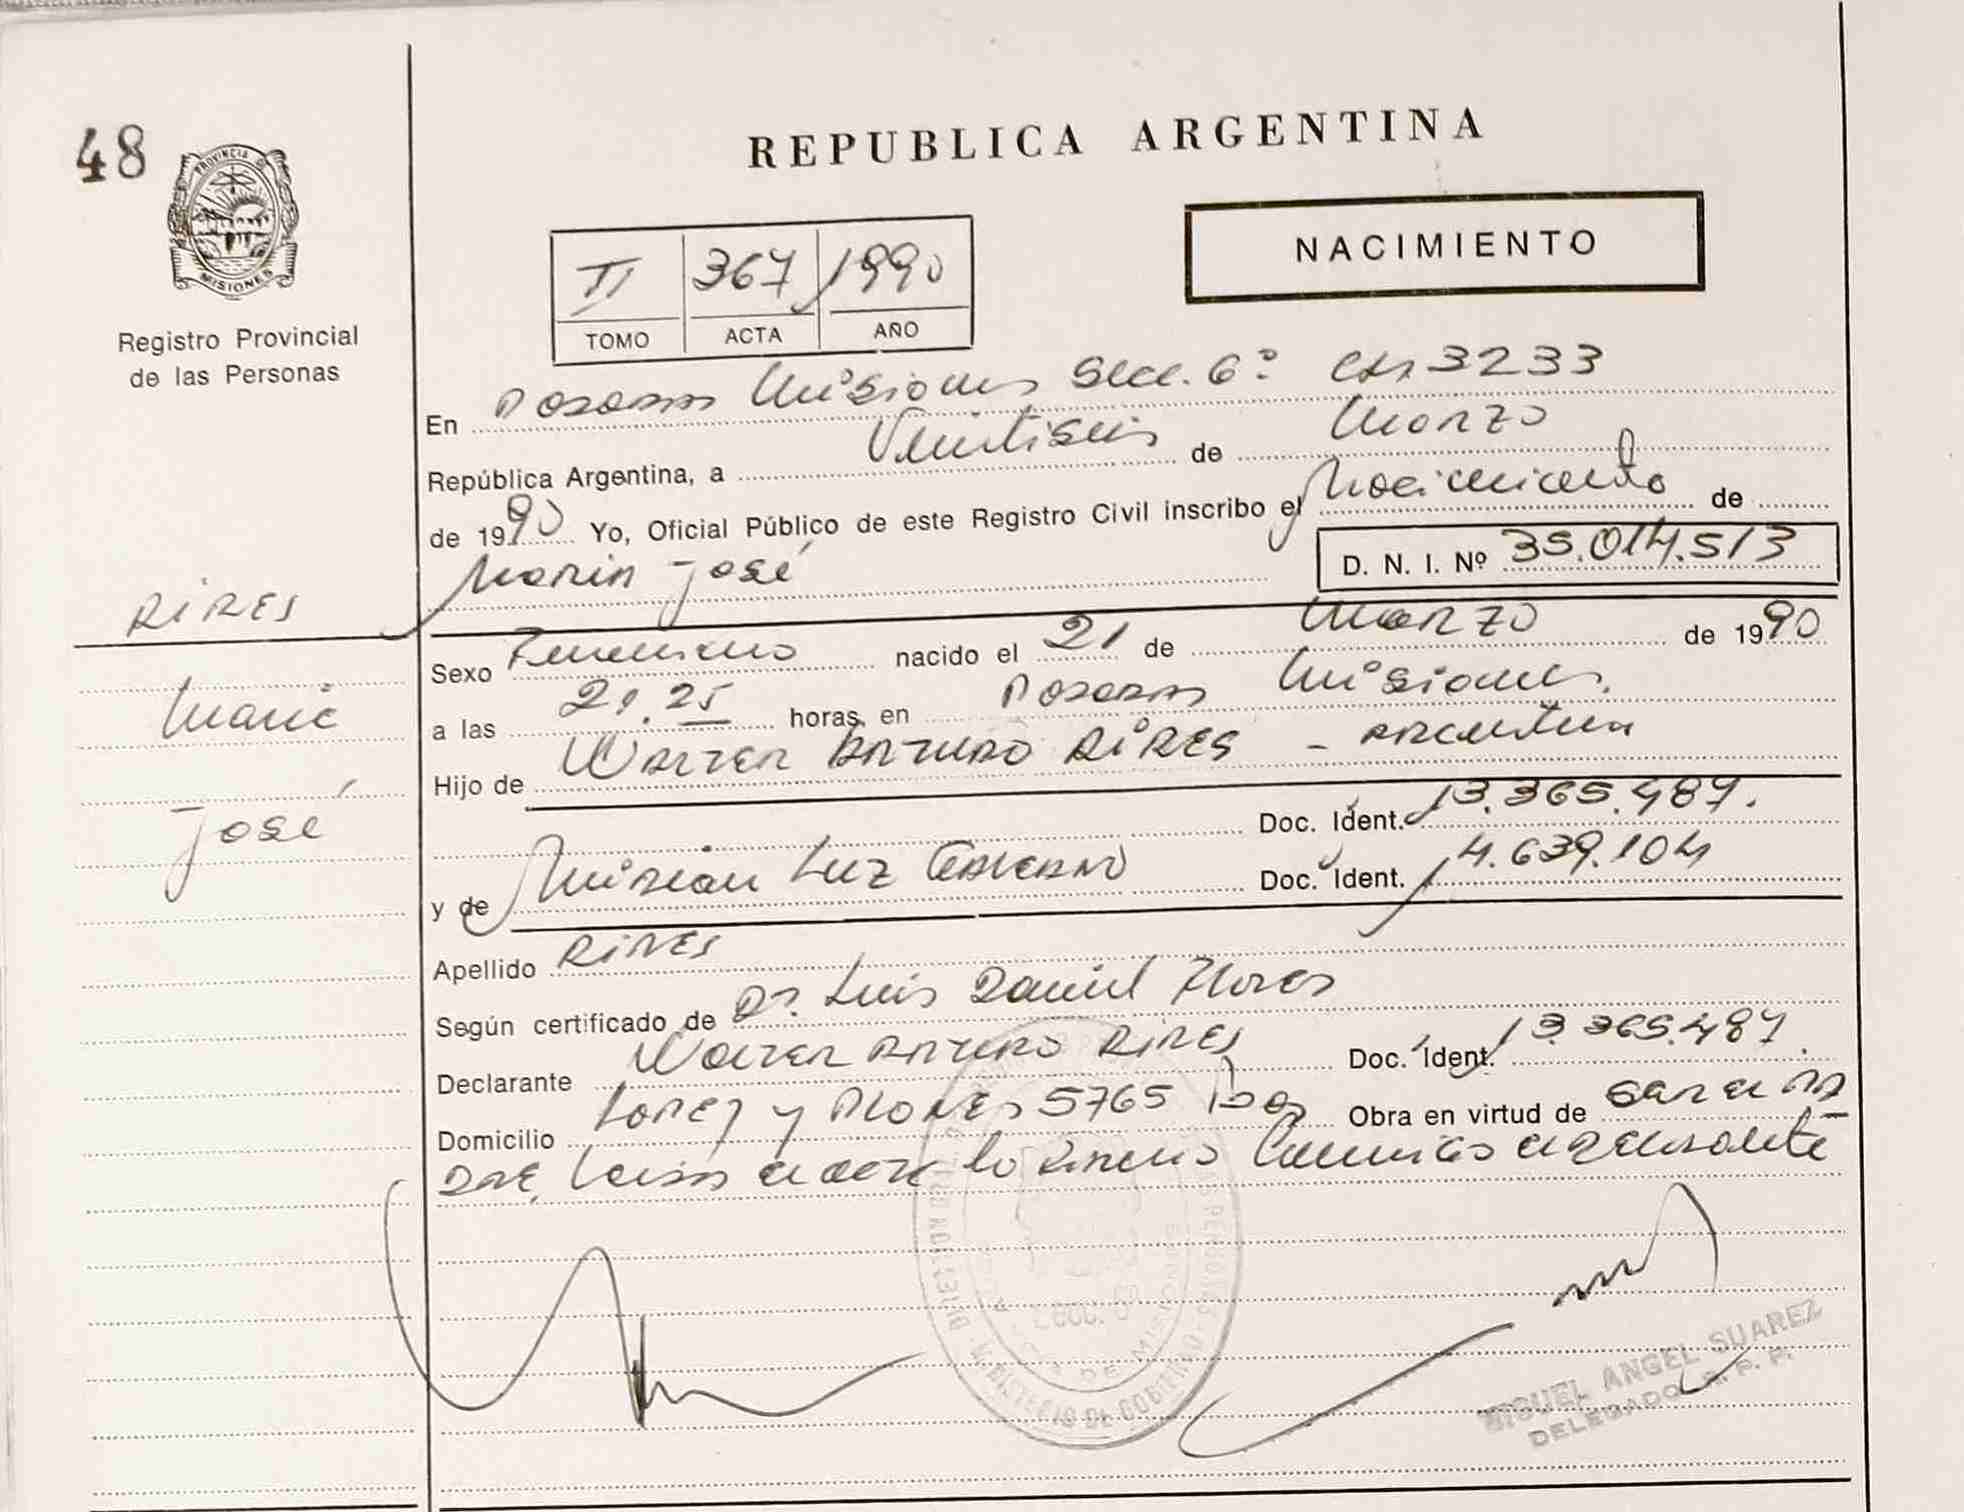 48
PROVINCIA DE
MISIONES
Registro Provincial
de las Personas
REPUBLICA ARGENTINA
NACIMIENTO
II 367 1990
TOMO ACTA AÑO
En Posadas Misiones Secc. 6º 3233
República Argentina, a Veintiseis de Marzo
de 1990 Yo, Oficial Público de este Registro Civil inscribo el Nacimiento de
María José
D. N. I. Nº 35.014.513
RIRES
María
José
Sexo Femenino nacido el 21 de Marzo de 1990
a las 21.25 horas, en Posadas Misiones.
Hijo de Walter Arturo RIRES - argentina
Doc. Ident. 13.365.487.
y de Mirian Luz Doc. Ident. 14.639.104
Apellido RIRES
Según certificado de Dr. Luis Daniel Flores
Declarante Walter Arturo RIRES Doc. Ident. 13.365.487.
Domicilio Lopez y Planes 5765 Obra en virtud de
lo
MIGUEL ANGEL SUAREZ
DELEGADO R. P. P.